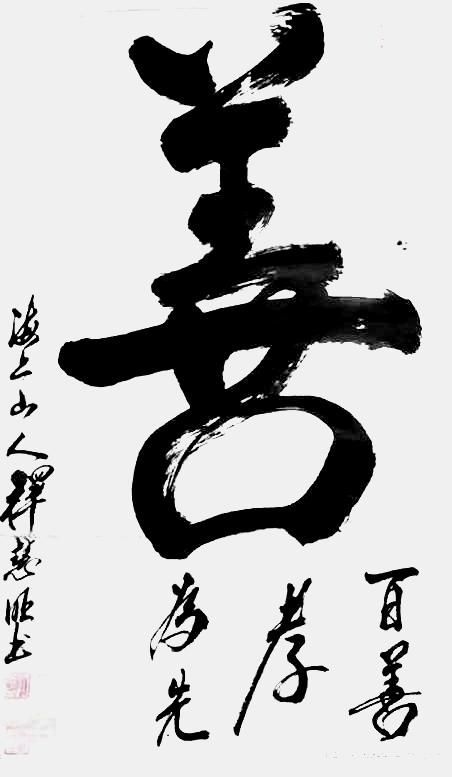 善
百善
孝
為先
海上山人釋慧明书